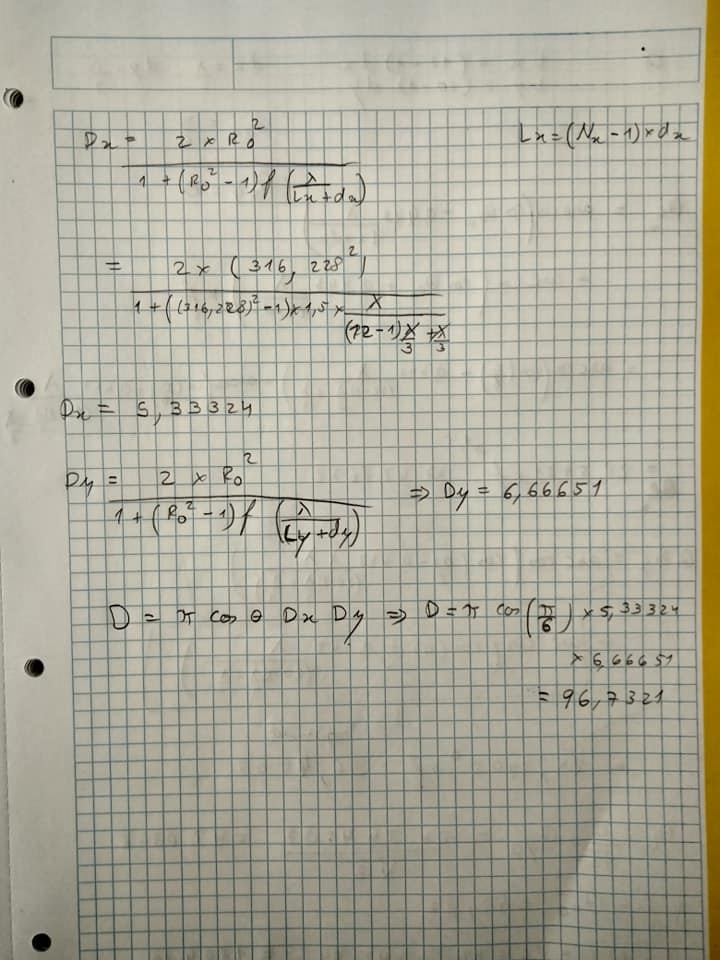 Dx = 2 × R₀² / 1 + (R₀² - 1) f (λ / Lx + dx)
Lx = (Nx - 1) × dx
= 2 × (316,228²) / 1 + ((316,228)² - 1) × 1,5 × λ / (12 - 1) λ/3 + λ/3
Dx = 5,33324
Dy = 2 × R₀² / 1 + (R₀² - 1) f (λ / Ly + dy) ⇒ Dy = 6,66651
D = π cos θ Dx Dy ⇒ D = π cos (π/6) × 5,33324
× 6,66651
= 96,7321